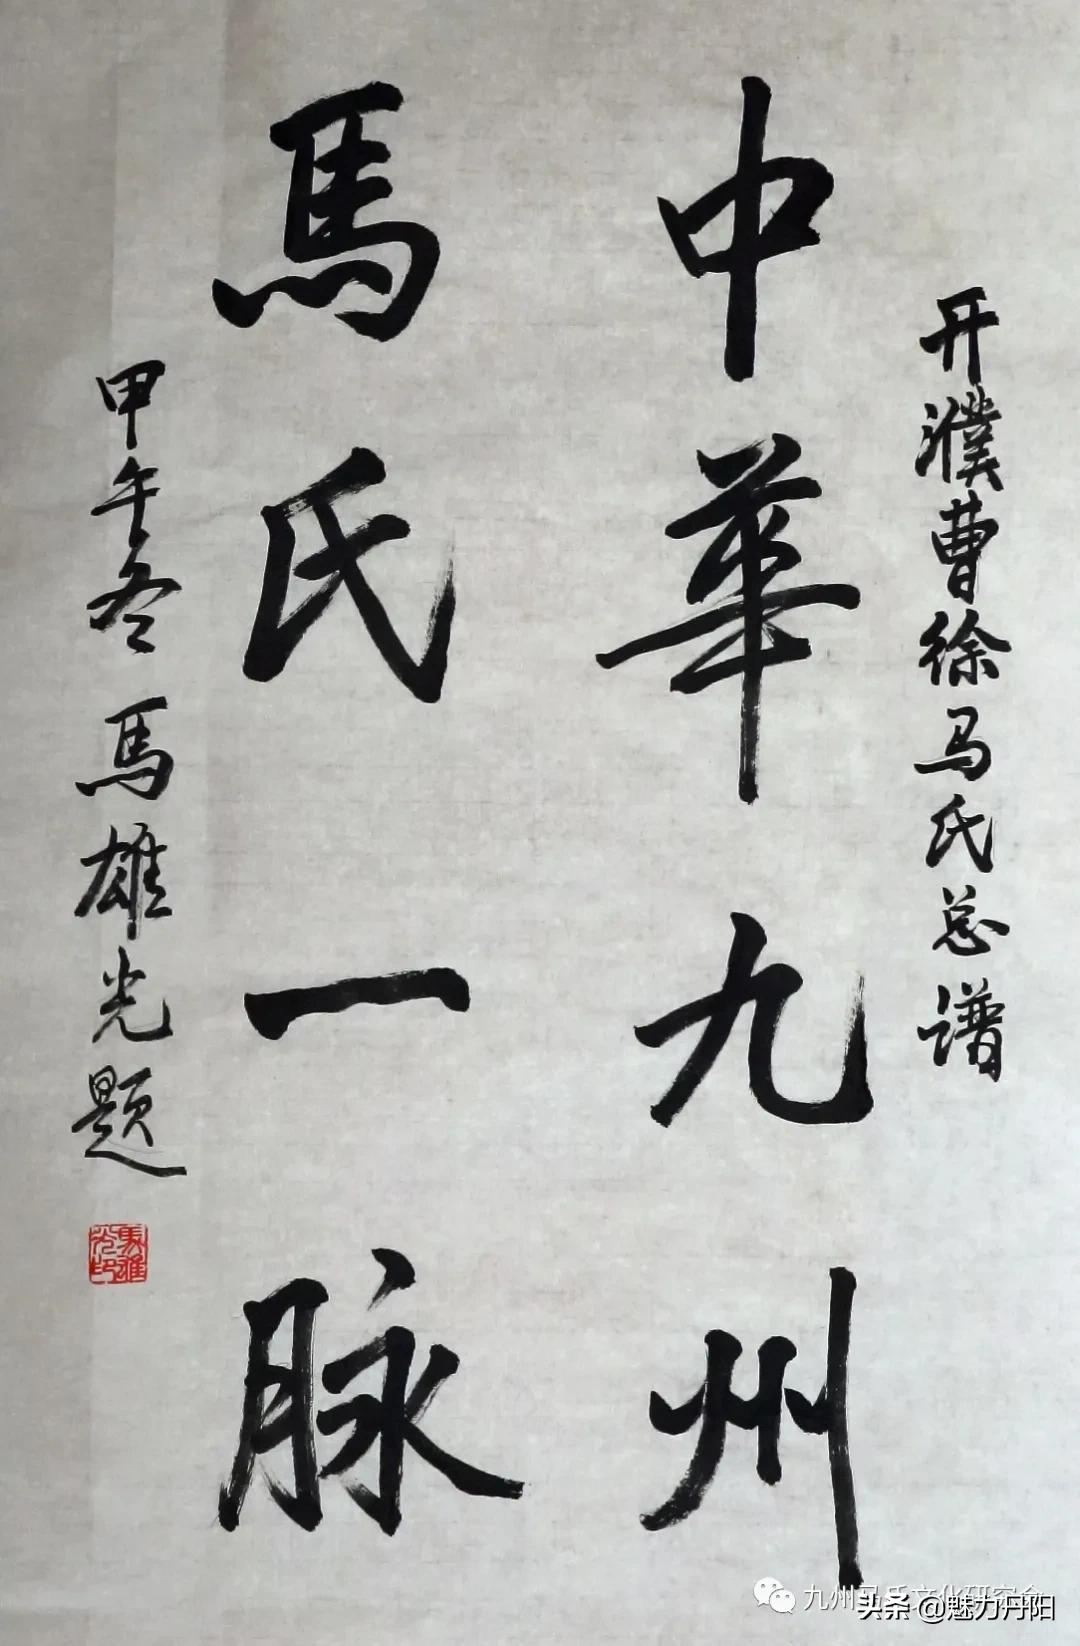 开濮曹徐马氏总谱
中華九州
馬氏一脉
甲午冬 馬雄光题
馬雄光印
九州马氏文化研究会
头条 @魅力丹阳